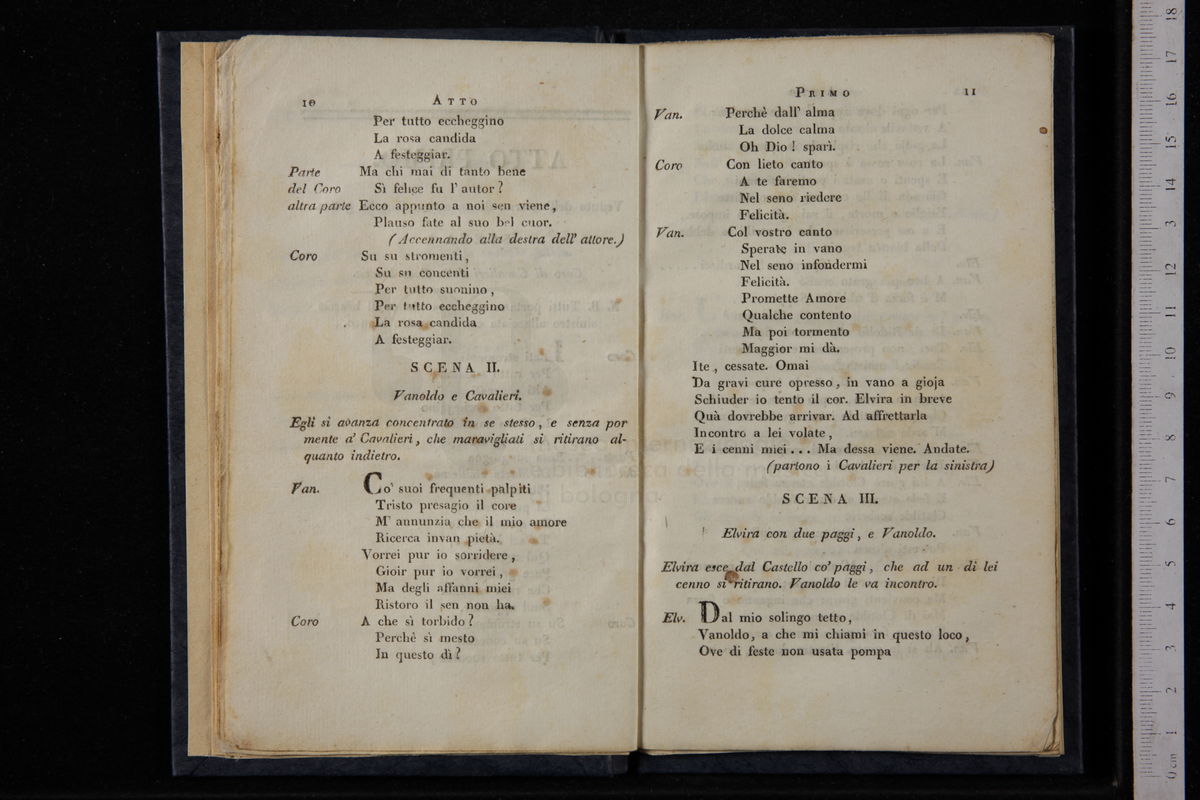 10 ATTO
Per tutto eccheggino
La rosa candida
A festeggiar.
Parte Ma chi mai di tanto bene
del Coro Sì felice fu l' autor?
altra parte Ecco appunto a noi sen viene,
Plauso fate al suo bel cuor.
(Accennando alla destra dell' attore.)
Coro Su su stromenti,
Su su concenti
Per tutto suonino,
Per tutto eccheggino
La rosa candida
A festeggiar.
SCENA II.
Vanoldo e Cavalieri.
Egli si avanza concentrato in se stesso, e senza por
mente a' Cavalieri, che maravigliati si ritirano al-
quanto indietro.
Van. Co' suoi frequenti palpiti
Tristo presagio il core
M' annunzia che il mio amore
Ricerca invan pietà.
Vorrei pur io sorridere,
Gioir pur io vorrei,
Ma degli affanni miei
Ristoro il sen non ha.
Coro A che sì torbido?
Perchè sì mesto
In questo dì?
PRIMO 11
Van. Perchè dall' alma
La dolce calma
Oh Dio! sparì.
Coro Con lieto canto
A te faremo
Nel seno riedere
Felicità.
Van. Col vostro canto
Sperate in vano
Nel seno infondermi
Felicità.
Promette Amore
Qualche contento
Ma poi tormento
Maggior mi dà.
Ite, cessate. Omai
Da gravi cure opresso, in vano a gioja
Schiuder io tento il cor. Elvira in breve
Quà dovrebbe arrivar. Ad affrettarla
Incontro a lei volate,
E i cenni miei... Ma dessa viene. Andate.
(partono i Cavalieri per la sinistra)
SCENA III.
Elvira con due paggi, e Vanoldo.
Elvira esce dal Castello co' paggi, che ad un di lei
cenno si ritirano. Vanoldo le va incontro.
Elv. Dal mio solingo tetto,
Vanoldo, a che mi chiami in questo loco,
Ove di feste non usata pompa